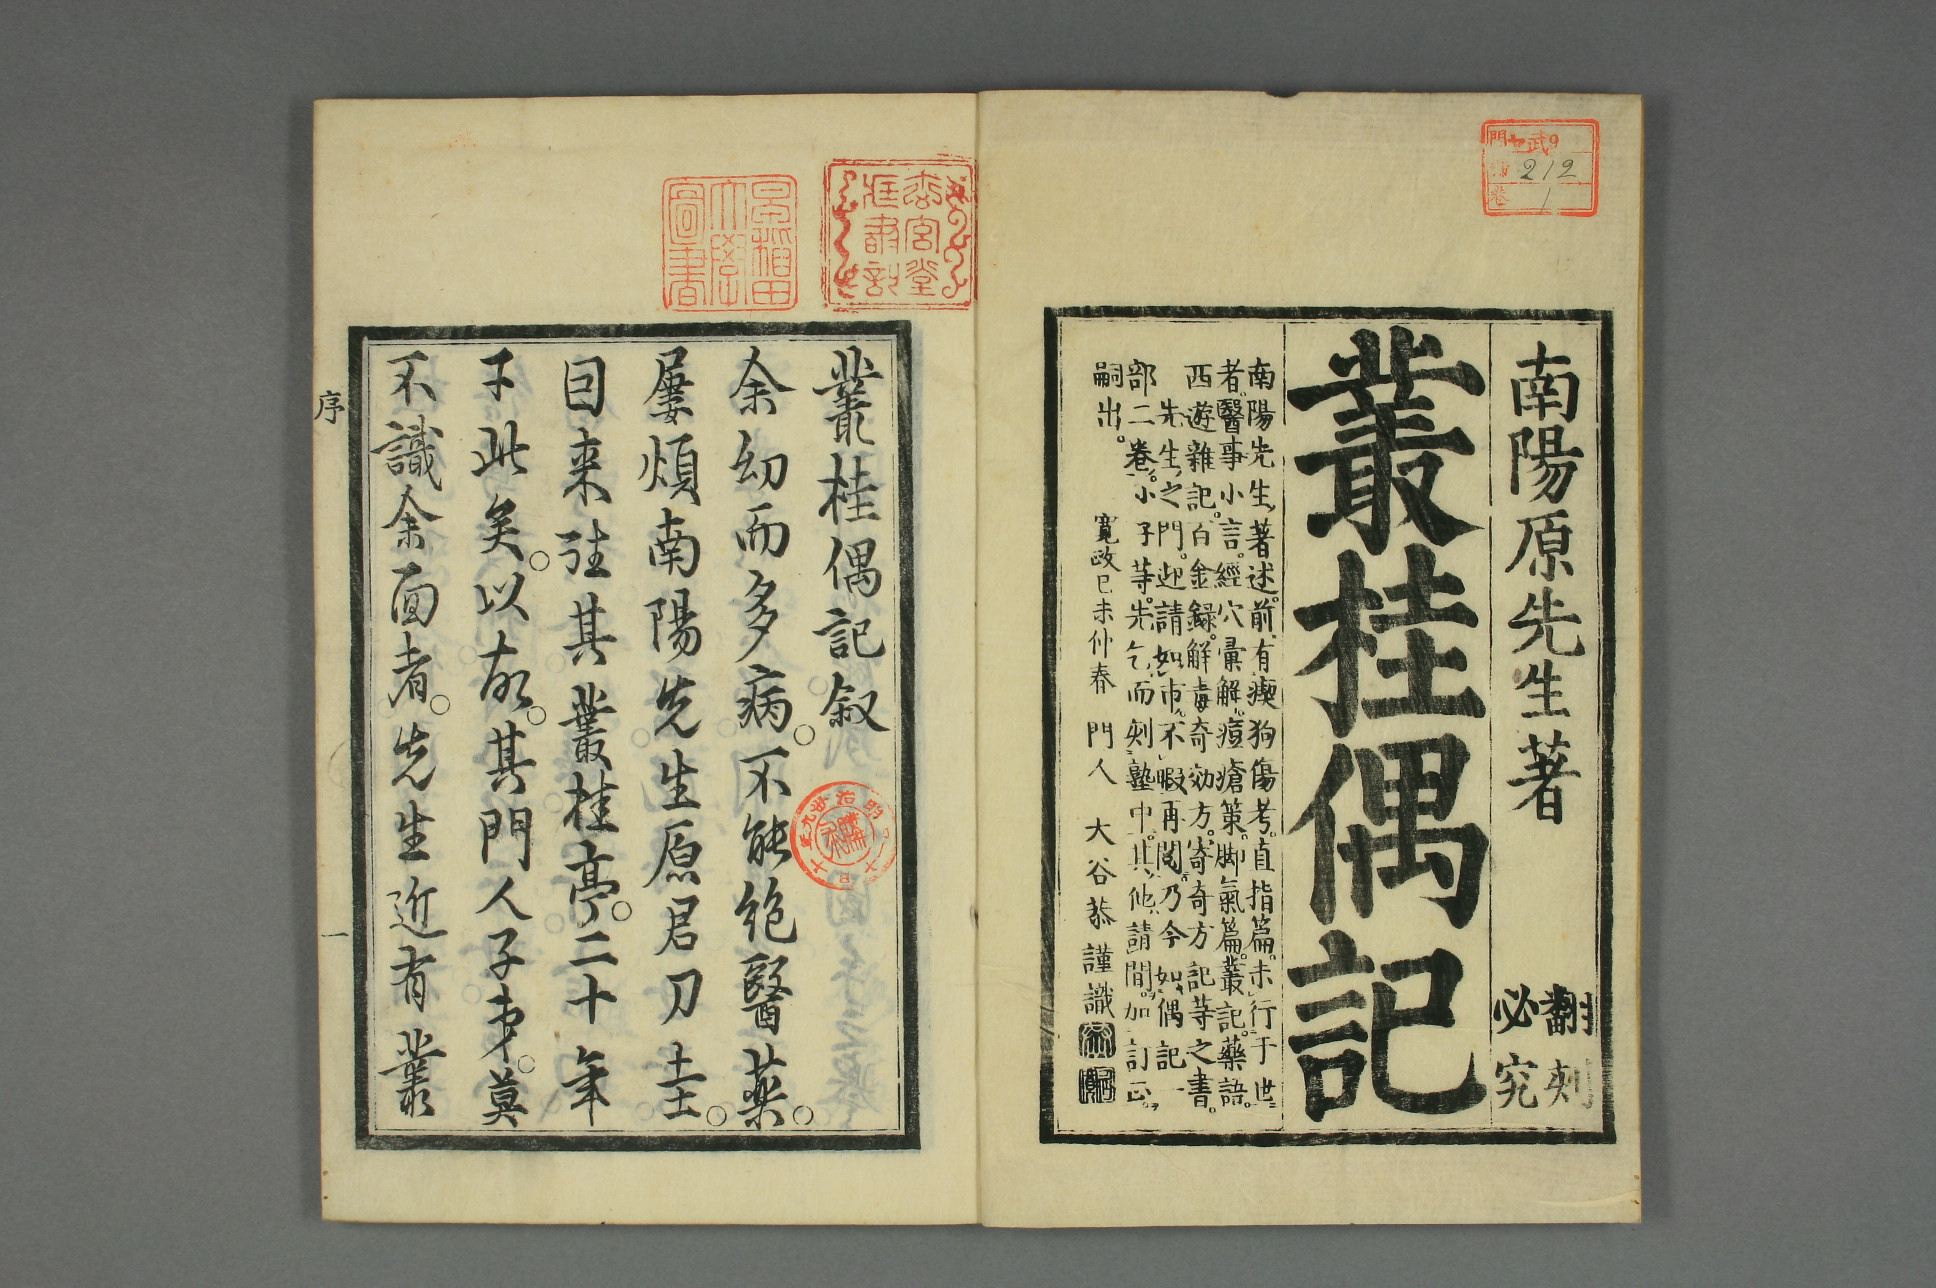 南陽原先生著
翻刻
必究
叢桂偶記
南陽先生著述前有瘈狗傷考直指篇未行于世
者醫事小言。經穴彙解。痘瘡策。脚氣篇。叢記。藥語。
西遊雜記。百金錄。解毒奇効方。寄奇方記等之書。
先生之門。迎請如市。不暇再閱。乃今如偶記一
部二卷。小子等。先乞而刻塾中。其他請間。加訂正。
嗣出。
寛政己未仲春 門人 大谷恭謹識
叢桂偶記叙
余幼而多病。不能絶醫藥。
屢煩南陽先生原君刀圭。
曰来往其叢桂亭。二十年
于此矣。以故。其門人子弟。莫
不識余面者。先生近有叢
序
一
早稲田
大學
圖書
門
9
212
卷
1